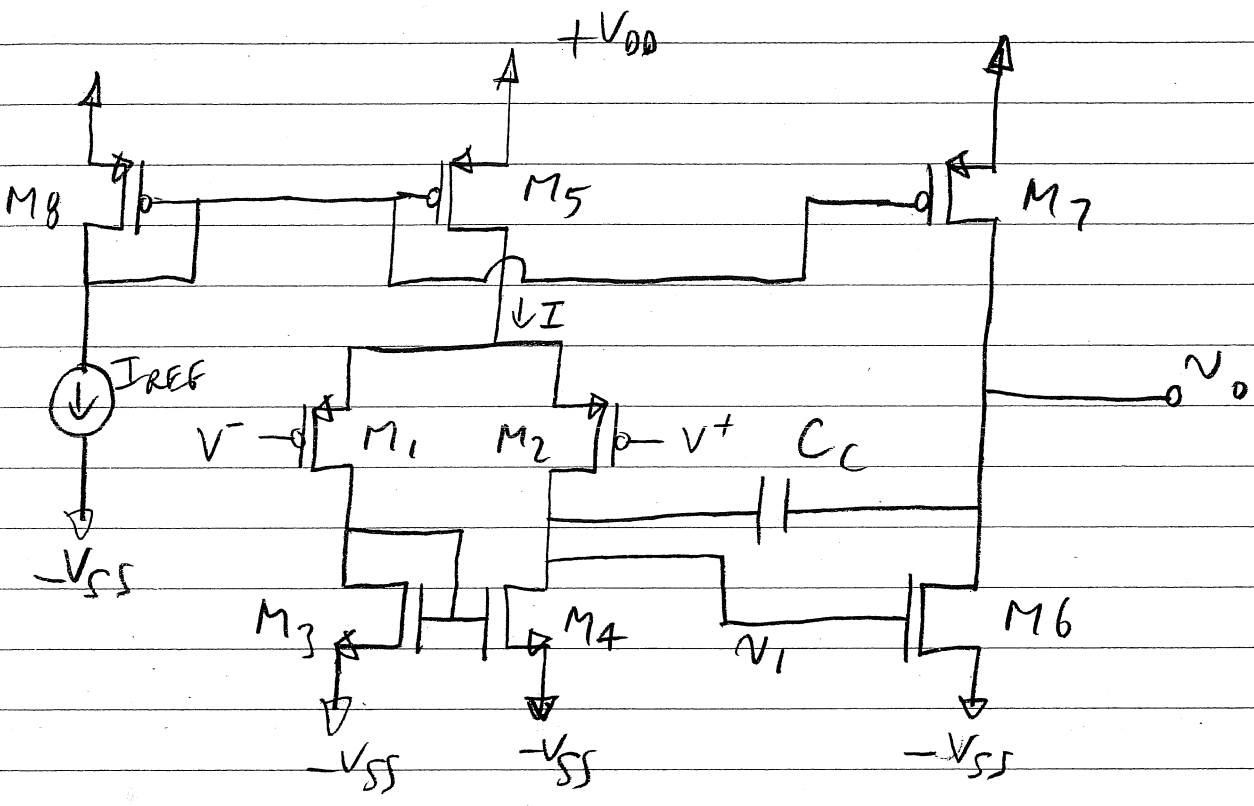 +VDD
M8
M5
M7
↓I
IREF
vo
V-
M1
M2
V+
CC
-VSS
M3
M4
M6
v1
-VSS
-VSS
-VSS